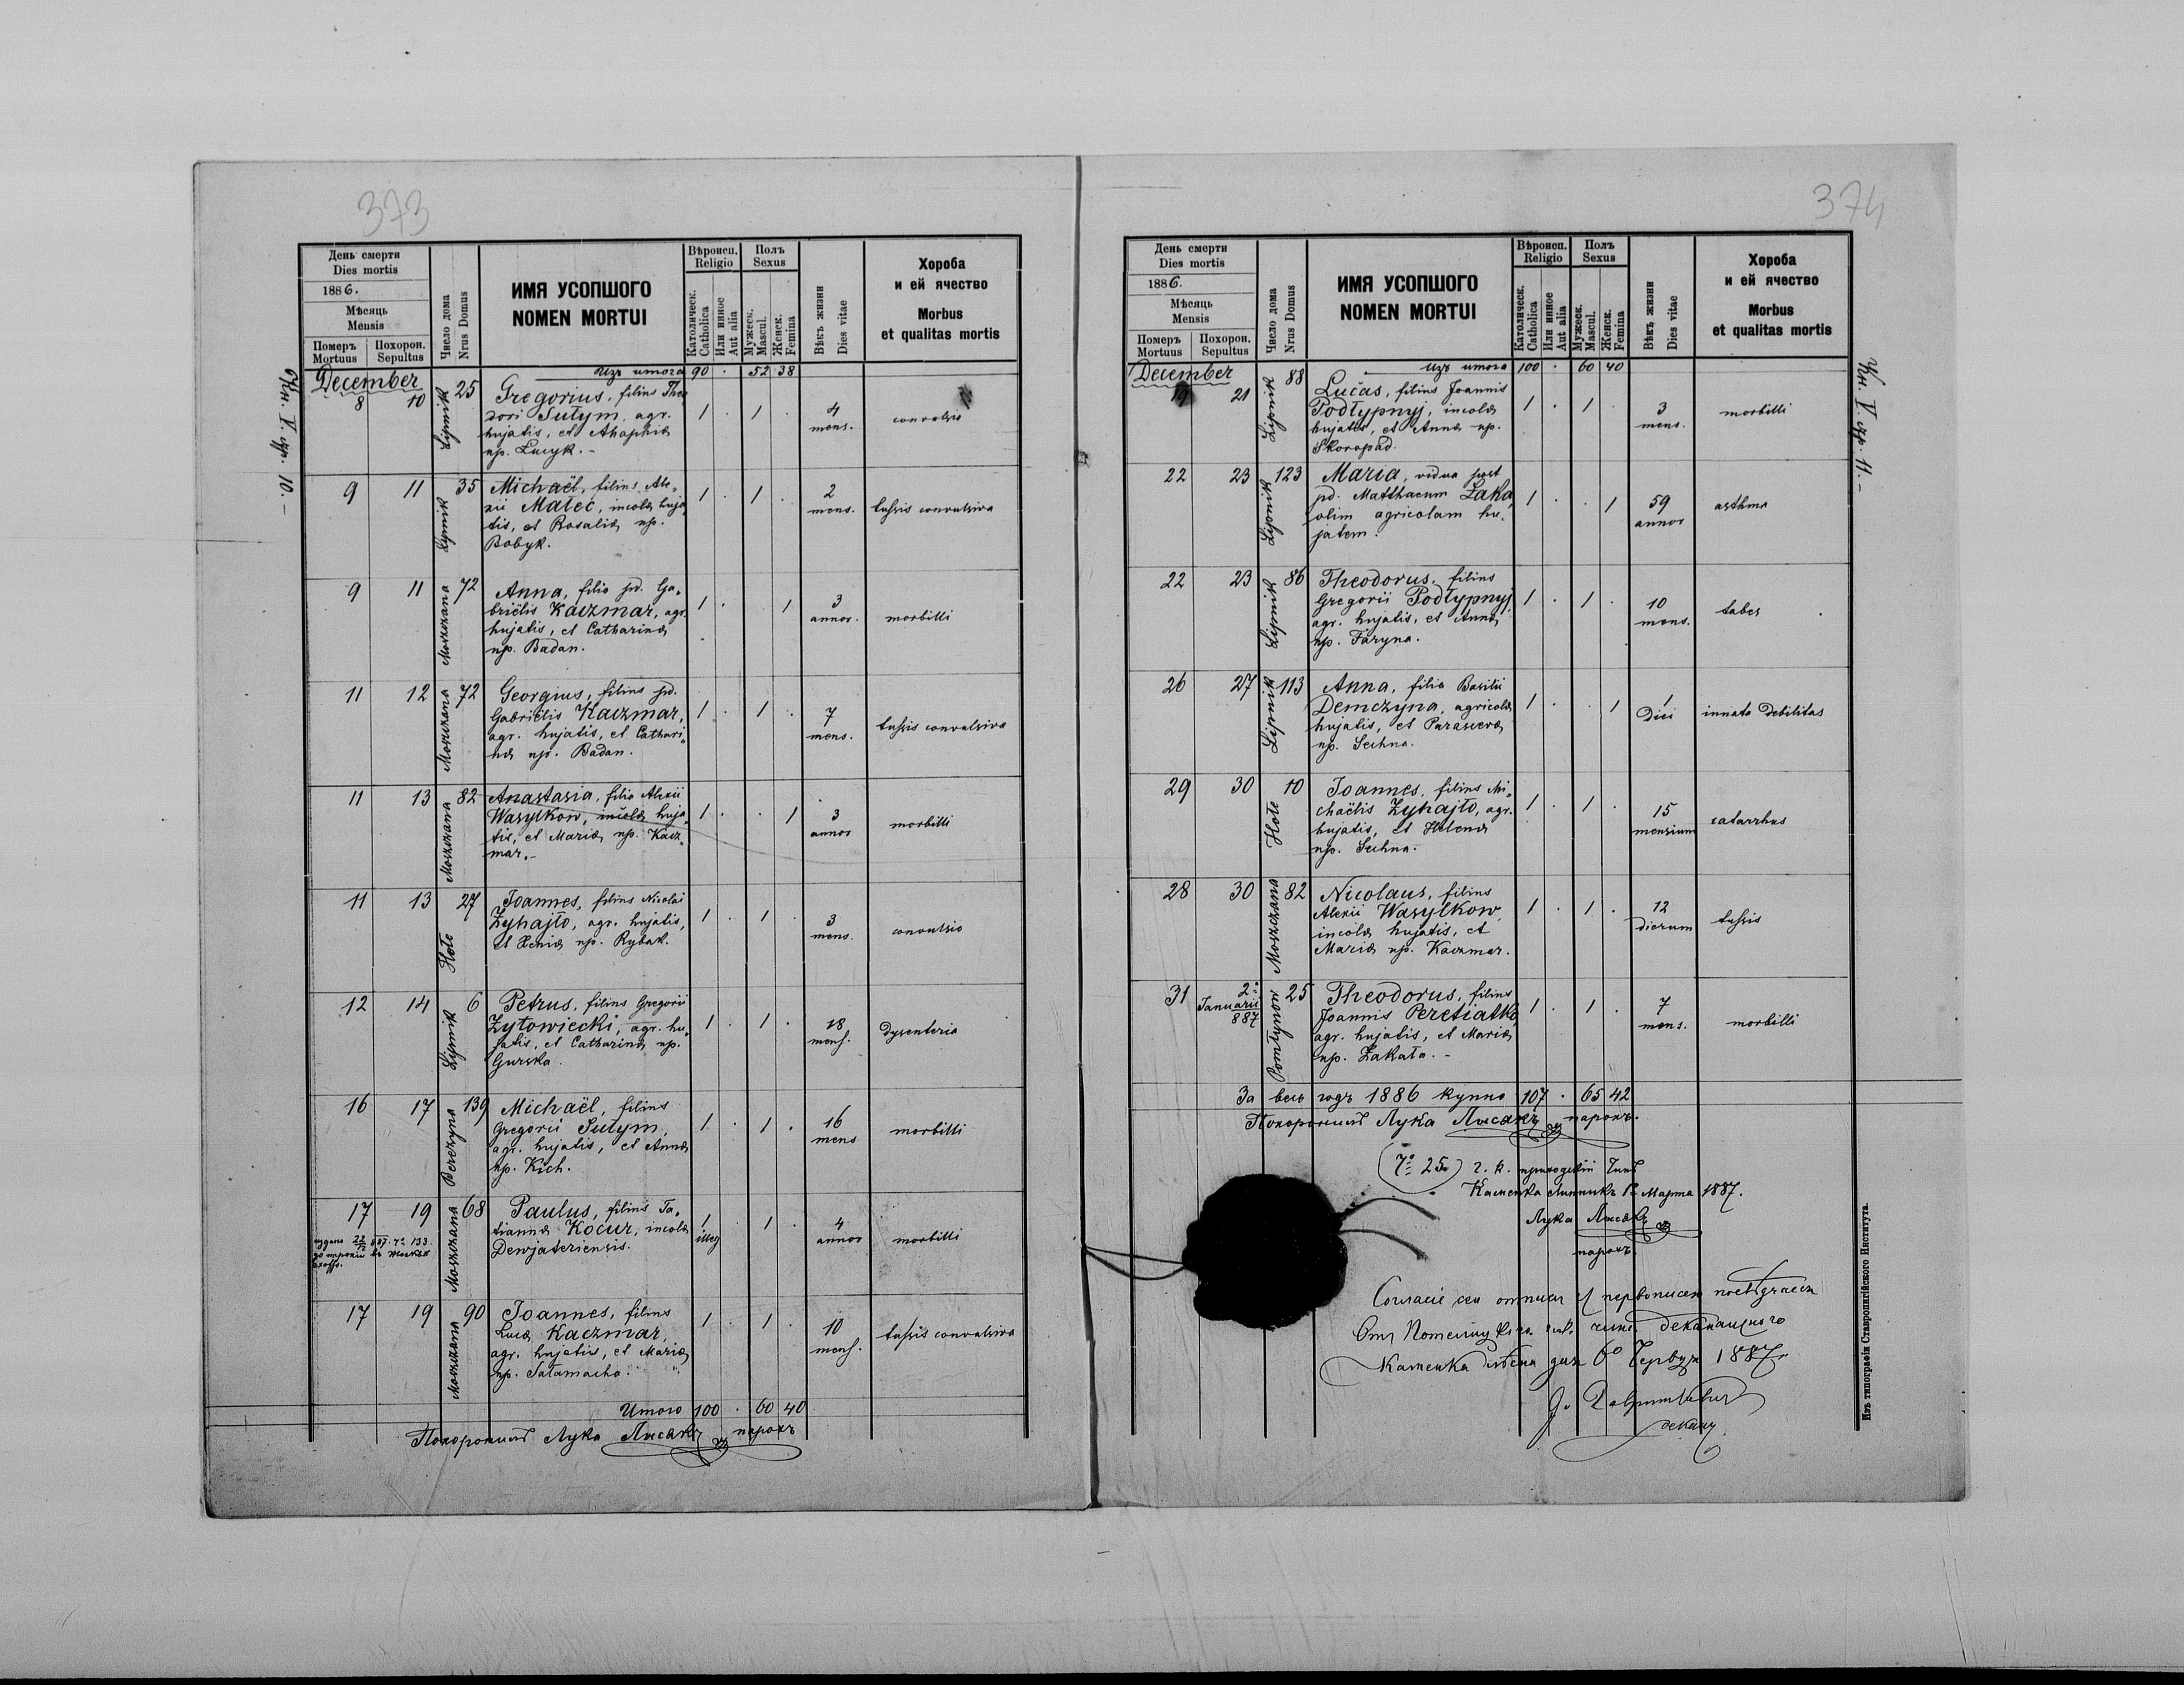 373
День смерти
Dies mortis
1886.
Мѣсяць
Mensis
Померъ
Mortuus
Похорон.
Sepultus
Число дома
Nrus Domus
ИМЯ УСОПШОГО
NOMEN MORTUI
Вѣроисп.
Religio
Католическ.
Catholica
Или инное
Aut alia
Полъ
Sexus
Мужеск.
Mascul.
Женск.
Femina
Вѣкъ жизни
Dies vitae
Хороба
и ей ячество
Morbus
et qualitas mortis
Изъ итога 90 . 52 38
December
8 10 Lipnik 25
Gregorius, filius Theo
dori Sutym, agr.
hujatis, et Ahaphiæ
np. Lucyk. –
1 . 1 .
4
mens.
convulsio
9 11 Lipnik 35
Michaël, filius Ale„
xii Malec, incolæ huja
tis, et Rosaliæ np.
Bobyk.
1 . 1 .
2
mens.
tussis convulsiva
9 11 Moszczana 72
Anna, filia pd. Ga„
briëlis Kaczmar, agr.
hujatis, et Catharinæ
np. Badan.
1 . . 1
3
annor.
morbilli
11 12 Moszczana 72
Georgius, filius pd.
Gabriëlis Kaczmar,
agr. hujatis, et Cathari„
næ np. Badan.
1 . 1 .
7
mens.
tussis convulsiva
11 13 Moszczana 82
Anastasia, filia Alexii
Wasylkow, incolæ huja„
tis, et Mariæ np. Kacz„
mar. –
1 . . 1
3
annor
morbilli
11 13 Hole 27
Joannes, filius Nicolai
Zyhajło, agr. hujatis,
et Xeniæ np. Rybak.
1 . 1 .
3
mens.
convulsio
12 14 Lipnik 6
Petrus, filius Gregorii
Zytowiecki, agr. hu„
jatis, et Catharinæ np.
Gurska.
1 . 1 .
18
mens.
dysenteria
16 17 Berezyna 139
Michaël, filius
Gregorii Sutym,
agr. hujatis, et Annæ
np. Kich.
1 . 1 .
16
mens
morbilli
17 19 Moszczana 68
Paulus, filius Ta„
tiannæ Kocur, incolæ
Dewjateriensis.
1 . 1 .
illeg
4
annor
morbilli
17 19 Moszczana 90
Joannes, filius
Lucæ Kaczmar,
agr. hujatis, et Mariæ
np. Satamacha.
1 . 1 .
10
mens.
tussis convulsiva
Итого 100 . 60 40
Похоронилъ Лука Лисакъ парохъ
374
День смерти
Dies mortis
1886.
Мѣсяць
Mensis
Померъ
Mortuus
Похорон.
Sepultus
Число дома
Nrus Domus
ИМЯ УСОПШОГО
NOMEN MORTUI
Вѣроисп.
Religio
Католическ.
Catholica
Или инное
Aut alia
Полъ
Sexus
Мужеск.
Mascul.
Женск.
Femina
Вѣкъ жизни
Dies vitae
Хороба
и ей ячество
Morbus
et qualitas mortis
Изъ итога 100 . 60 40
December
19 21 Lipnik 88
Lucas, filius Joannis
Podłypnyj, incolæ
hujatis, et Annæ np.
Skoropad.
1 . 1 .
3
mens.
morbilli
22 23 Lipnik 123
Maria, vidua post
pd. Matthaeum Łaka,
olim agricolam hu„
jatem.
1 . . 1
59
annor
asthma
22 23 Lipnik 86
Theodorus, filius
Gregorii Podłypnyj,
agr. hujatis, et Annæ
np. Faryna.
1 . 1 .
10
mens.
tabes
26 27 Lipnik 113
Anna, filia Basilii
Demczyna, agricolæ
hujatis, et Parascevæ
np. Sechna.
1 . . 1
1
Diei
innata debilitas
29 30 Hole 10
Joannes, filius Mi„
chaëlis Zyhajło, agr.
hujatis, et Helenæ
np. Sechna.
1 . 1 .
15
mensium
catarrhus
28 30 Moszczana 82
Nicolaus, filius
Alexii Wasylkow,
incolæ hujatis, et
Mariæ np. Kaczmar.
1 . 1 .
12
dierum
tussis
31 2
Januarii
887
Pomłynow 25
Theodorus, filius
Joannis Peretiatko,
agr. hujatis, et Mariæ
np. Zakała. –
1 . 1 .
7
mens.
morbilli
За весь годъ 1886 купно 107 . 65 42
Похоронилъ Лука Лисакъ парохъ.
25
Каменка Липникъ Марта 1887.
Лука Лисакъ
парохъ
1887
деканъ
Изъ типографіи Ставропигійского Института.